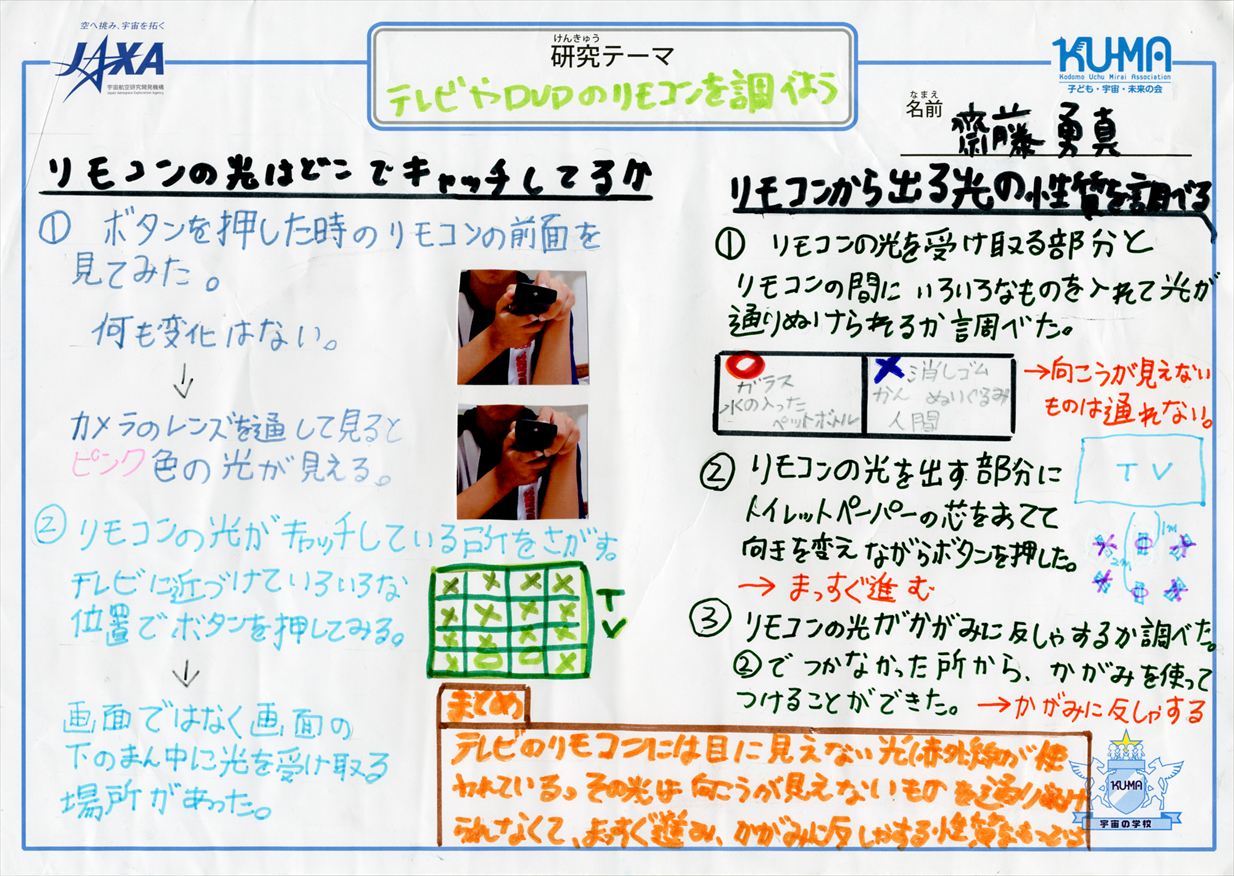 空へ挑み、宇宙を拓く
JAXA
宇宙航空研究開発機構
Japan Aerospace Exploration Agency
けんきゅう
研究テーマ
テレビやDVDのリモコンを調べよう
KU-MA
Kodomo Uchu Mirai Association
子ども・宇宙・未来の会
なまえ
名前
齋藤 勇真
リモコンの光はどこでキャッチしてるか
① ボタンを押した時のリモコンの前面を
見てみた。
何も変化はない。
↓
カメラのレンズを通して見ると
ピンク色の光が見える。
② リモコンの光がキャッチしている所をさがす。
テレビに近づけていろいろな
位置でボタンを押してみる。
↓
画面ではなく画面の
下のまん中に光を受け取る
場所があった。
× × × ×
× × × ×
× × × ×
× ○ ○ ×
TV
リモコンから出る光の性質を調べる
① リモコンの光を受け取る部分と
リモコンの間にいろいろなものを入れて光が
通りぬけられるか調べた。
○
ガラス
水の入った
ペットボトル
× 消しゴム
かん ぬいぐるみ
人間
→向こうが見えない
ものは通れない。
② リモコンの光を出す部分に
トイレットペーパーの芯をあてて
向きを変えながらボタンを押した。
→ まっすぐ進む
TV
1m
2m
③ リモコンの光がかがみに反しゃするか調べた。
②でつかなかった所から、かがみを使って
つけることができた。 →かがみに反しゃする
まとめ
テレビのリモコンには目に見えない光(赤外線)が使
われている。その光は向こうが見えないものを通りぬけ
られなくて、まっすぐ進み、かがみに反しゃする性質をもってる
KUMA
宇宙の学校